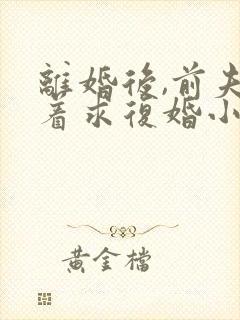 離婚後,前夫
着求復婚小
黃金檔